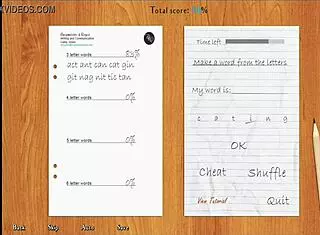 XVIDEOS.COM
Total score: %
3 letter words 85%
act ant can cat gin
git nag nit tic tan
4 letter words 0%
5 letter words 0%
6 letter words 0%
Time left
Make a word from the letters
My word is:
c a t i n g
OK
Cheat Shuffle
Quit
Back Skip Auto Save